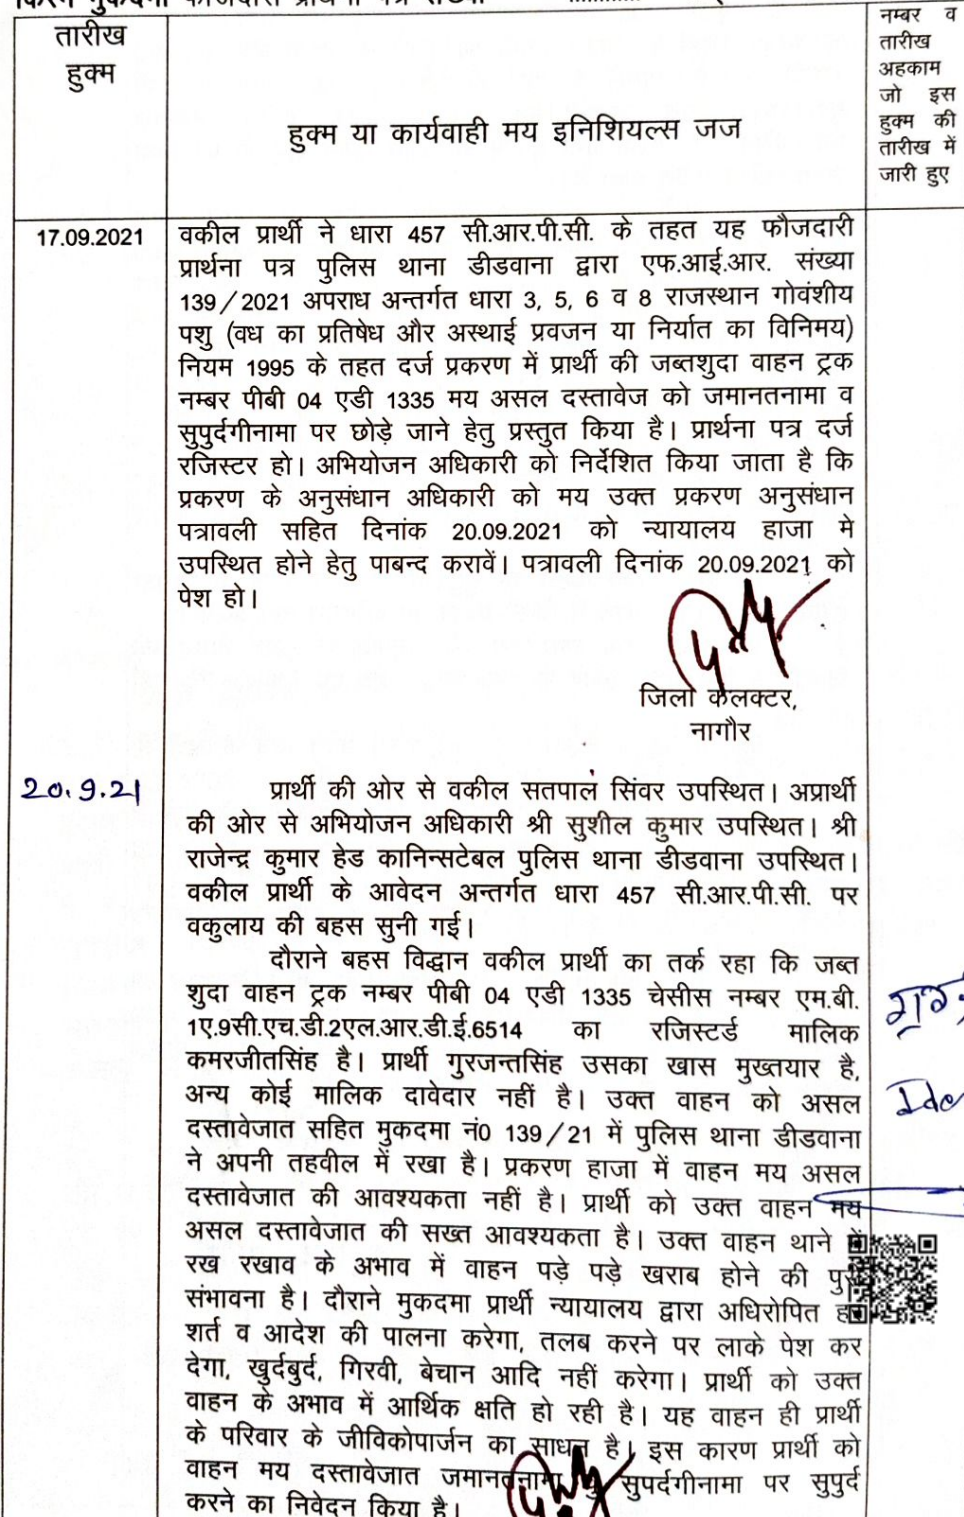 किस्म मुकदमा फौजदारी प्रार्थना पत्र संख्या
तारीख
हुक्म
हुक्म या कार्यवाही मय इनिशियल्स जज
नम्बर व
तारीख
अहकाम
जो इस
हुक्म की
तारीख में
जारी हुए
17.09.2021
वकील प्रार्थी ने धारा 457 सी.आर.पी.सी. के तहत यह फौजदारी
प्रार्थना पत्र पुलिस थाना डीडवाना द्वारा एफ.आई.आर. संख्या
139/2021 अपराध अन्तर्गत धारा 3, 5, 6 व 8 राजस्थान गोवंशीय
पशु (वध का प्रतिषेध और अस्थाई प्रवजन या निर्यात का विनिमय)
नियम 1995 के तहत दर्ज प्रकरण में प्रार्थी की जब्तशुदा वाहन ट्रक
नम्बर पीबी 04 एडी 1335 मय असल दस्तावेज को जमानतनामा व
सुपुर्दगीनामा पर छोड़े जाने हेतु प्रस्तुत किया है। प्रार्थना पत्र दर्ज
रजिस्टर हो। अभियोजन अधिकारी को निर्देशित किया जाता है कि
प्रकरण के अनुसंधान अधिकारी को मय उक्त प्रकरण अनुसंधान
पत्रावली सहित दिनांक 20.09.2021 को न्यायालय हाजा मे
उपस्थित होने हेतु पाबन्द करावें। पत्रावली दिनांक 20.09.2021 को
पेश हो।
जिला कलक्टर,
नागौर
20.9.21
प्रार्थी की ओर से वकील सतपाल सिंवर उपस्थित। अप्रार्थी
की ओर से अभियोजन अधिकारी श्री सुशील कुमार उपस्थित। श्री
राजेन्द्र कुमार हेड कानिन्सटेबल पुलिस थाना डीडवाना उपस्थित।
वकील प्रार्थी के आवेदन अन्तर्गत धारा 457 सी.आर.पी.सी. पर
वकुलाय की बहस सुनी गई।
दौराने बहस विद्वान वकील प्रार्थी का तर्क रहा कि जब्त
शुदा वाहन ट्रक नम्बर पीबी 04 एडी 1335 चेसीस नम्बर एम.बी.
1ए.9सी.एच.डी.2एल.आर.डी.ई.6514 का रजिस्टर्ड मालिक
कमरजीतसिंह है। प्रार्थी गुरजन्तसिंह उसका खास मुख्तयार है,
अन्य कोई मालिक दावेदार नहीं है। उक्त वाहन को असल
दस्तावेजात सहित मुकदमा नं0 139/21 में पुलिस थाना डीडवाना
ने अपनी तहवील में रखा है। प्रकरण हाजा में वाहन मय असल
दस्तावेजात की आवश्यकता नहीं है। प्रार्थी को उक्त वाहन मय
असल दस्तावेजात की सख्त आवश्यकता है। उक्त वाहन थाने में
रख रखाव के अभाव में वाहन पड़े पड़े खराब होने की
संभावना है। दौराने मुकदमा प्रार्थी न्यायालय द्वारा अधिरोपित
शर्त व आदेश की पालना करेगा, तलब करने पर लाके पेश कर
देगा, खुर्दबुर्द, गिरवी, बेचान आदि नहीं करेगा। प्रार्थी को उक्त
वाहन के अभाव में आर्थिक क्षति हो रही है। यह वाहन ही प्रार्थी
के परिवार के जीविकोपार्जन का साधन है। इस कारण प्रार्थी को
वाहन मय दस्तावेजात जमानतनामा सुपर्दगीनामा पर सुपुर्द
करने का निवेदन किया है।